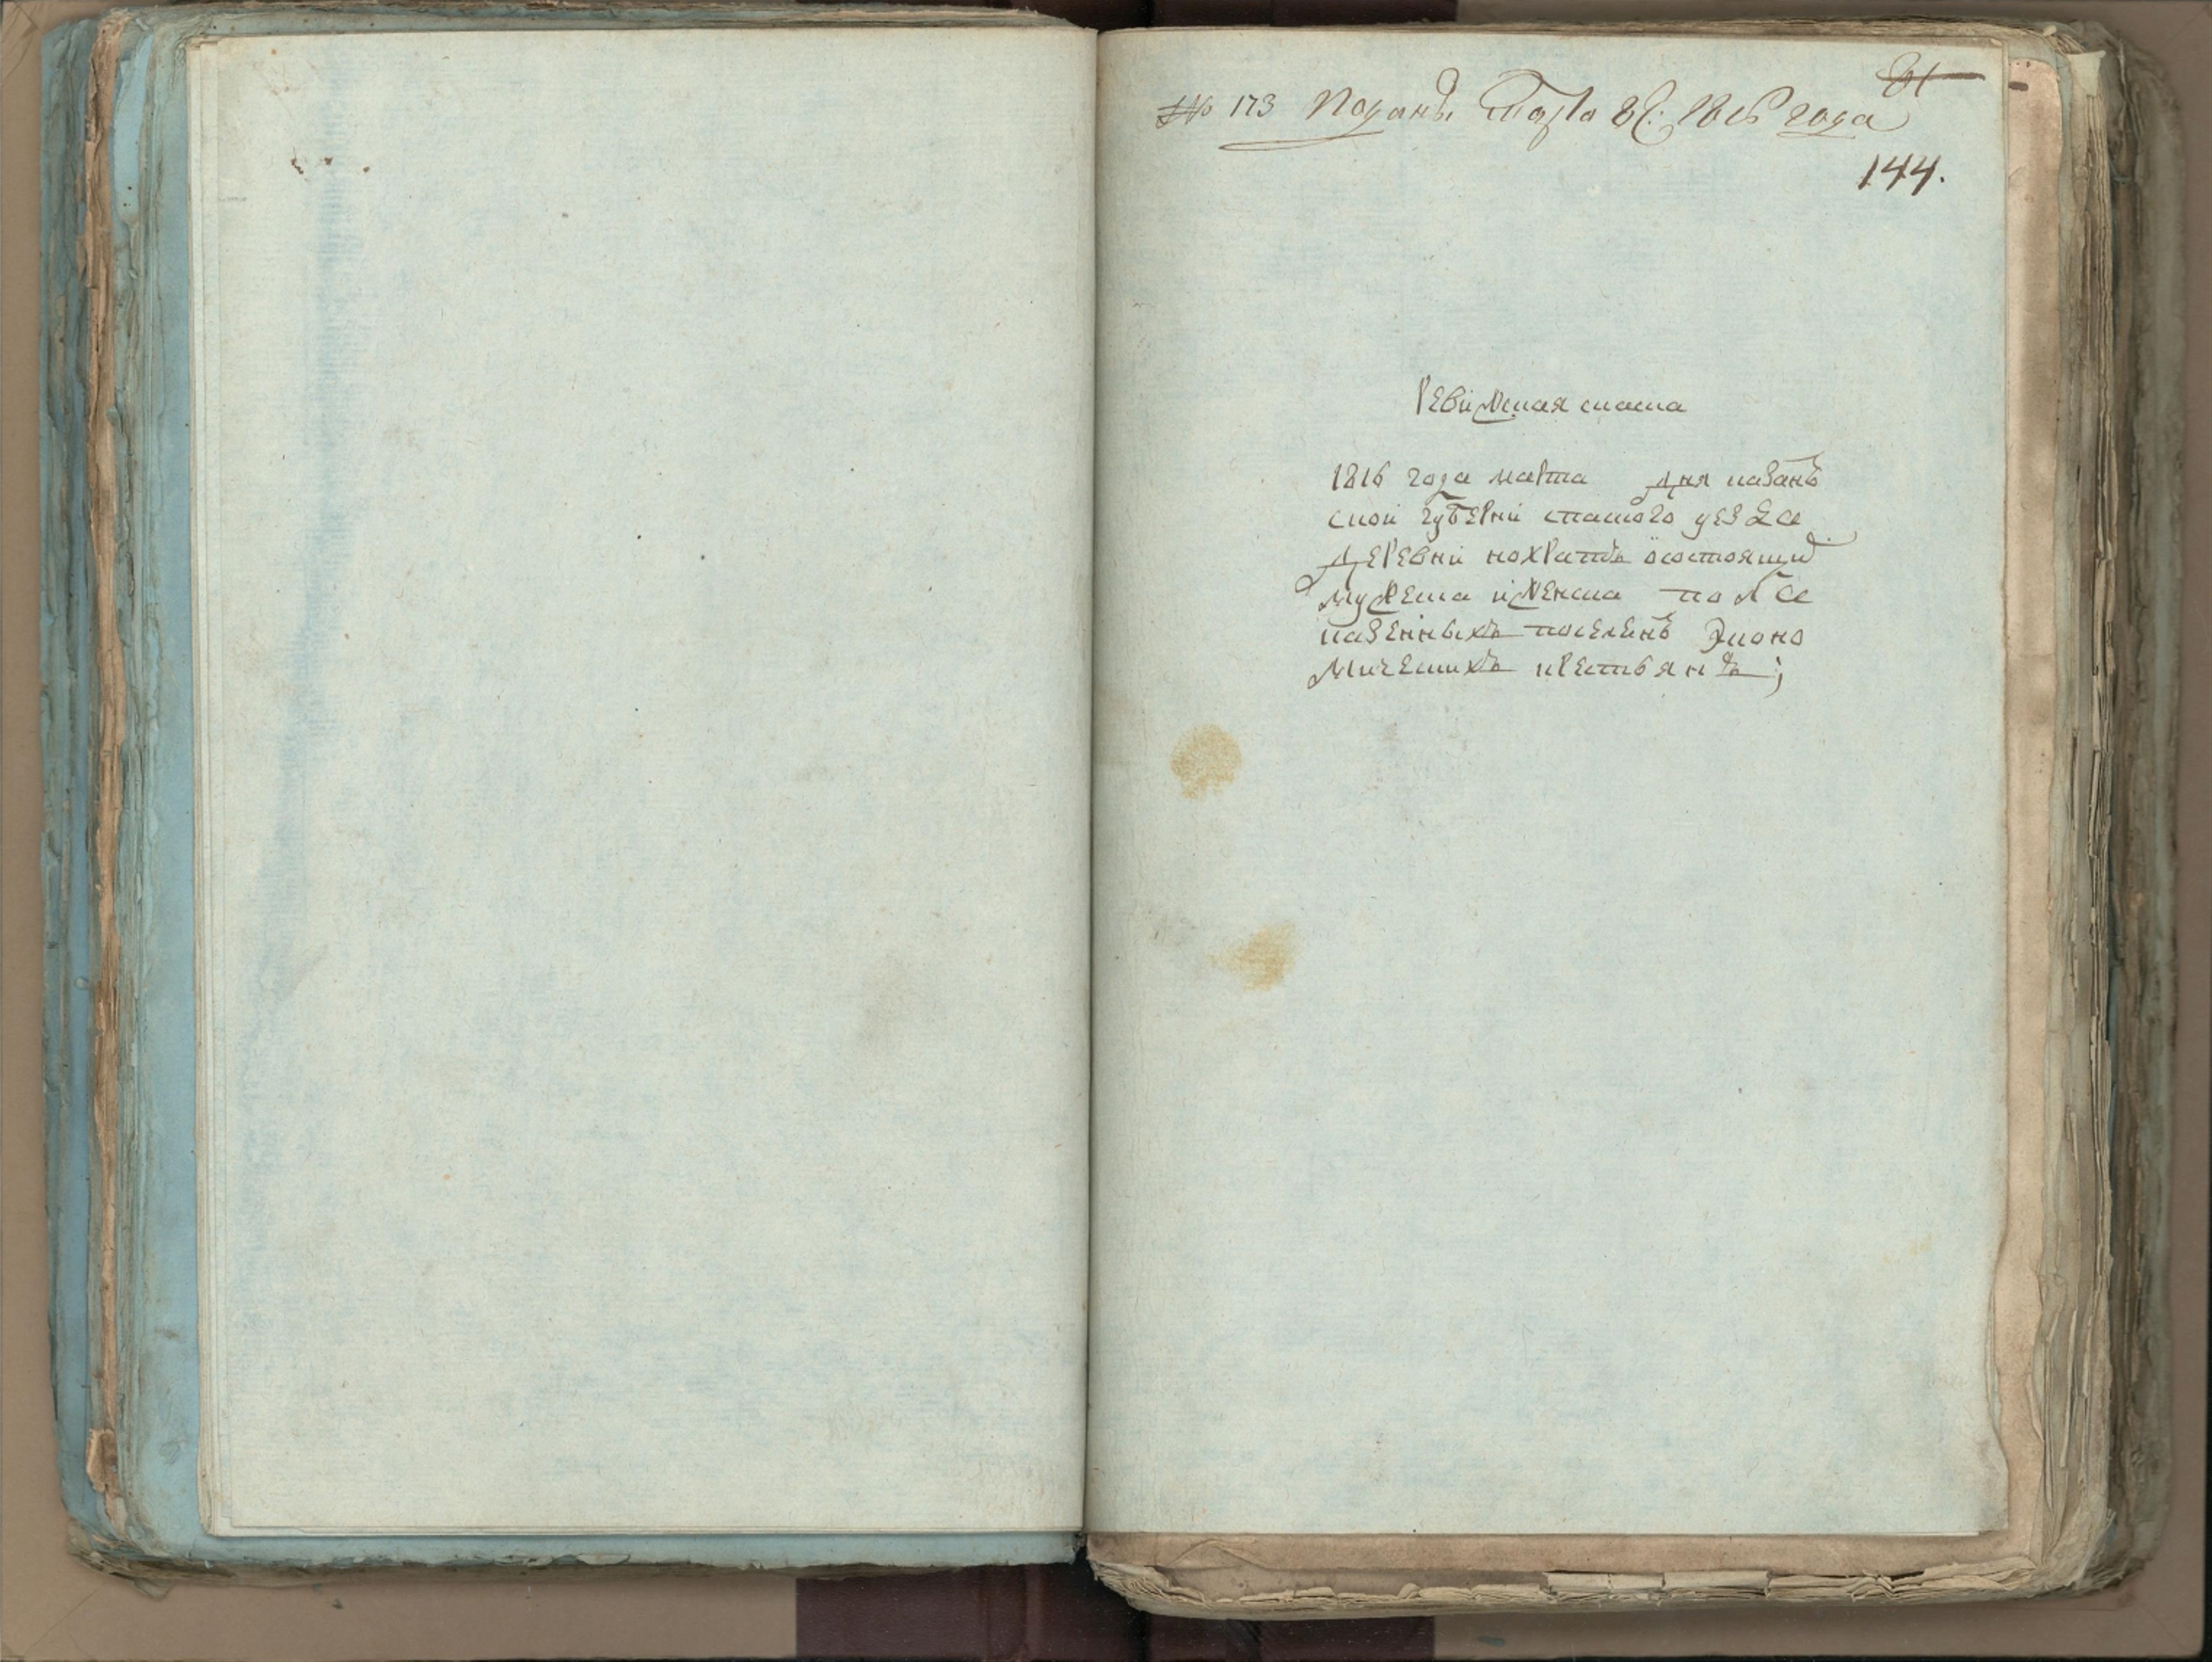 № 173 Поданъ Марта 1816 года
144.
Ревижская скаска
1816 года марта дня казанъ
ской губерни спаскаго уезда
деревни кохратъ о состоящи
мужеска и женска пола
казенныхъ поселенъ Экono
мическихъ крестьянъ;